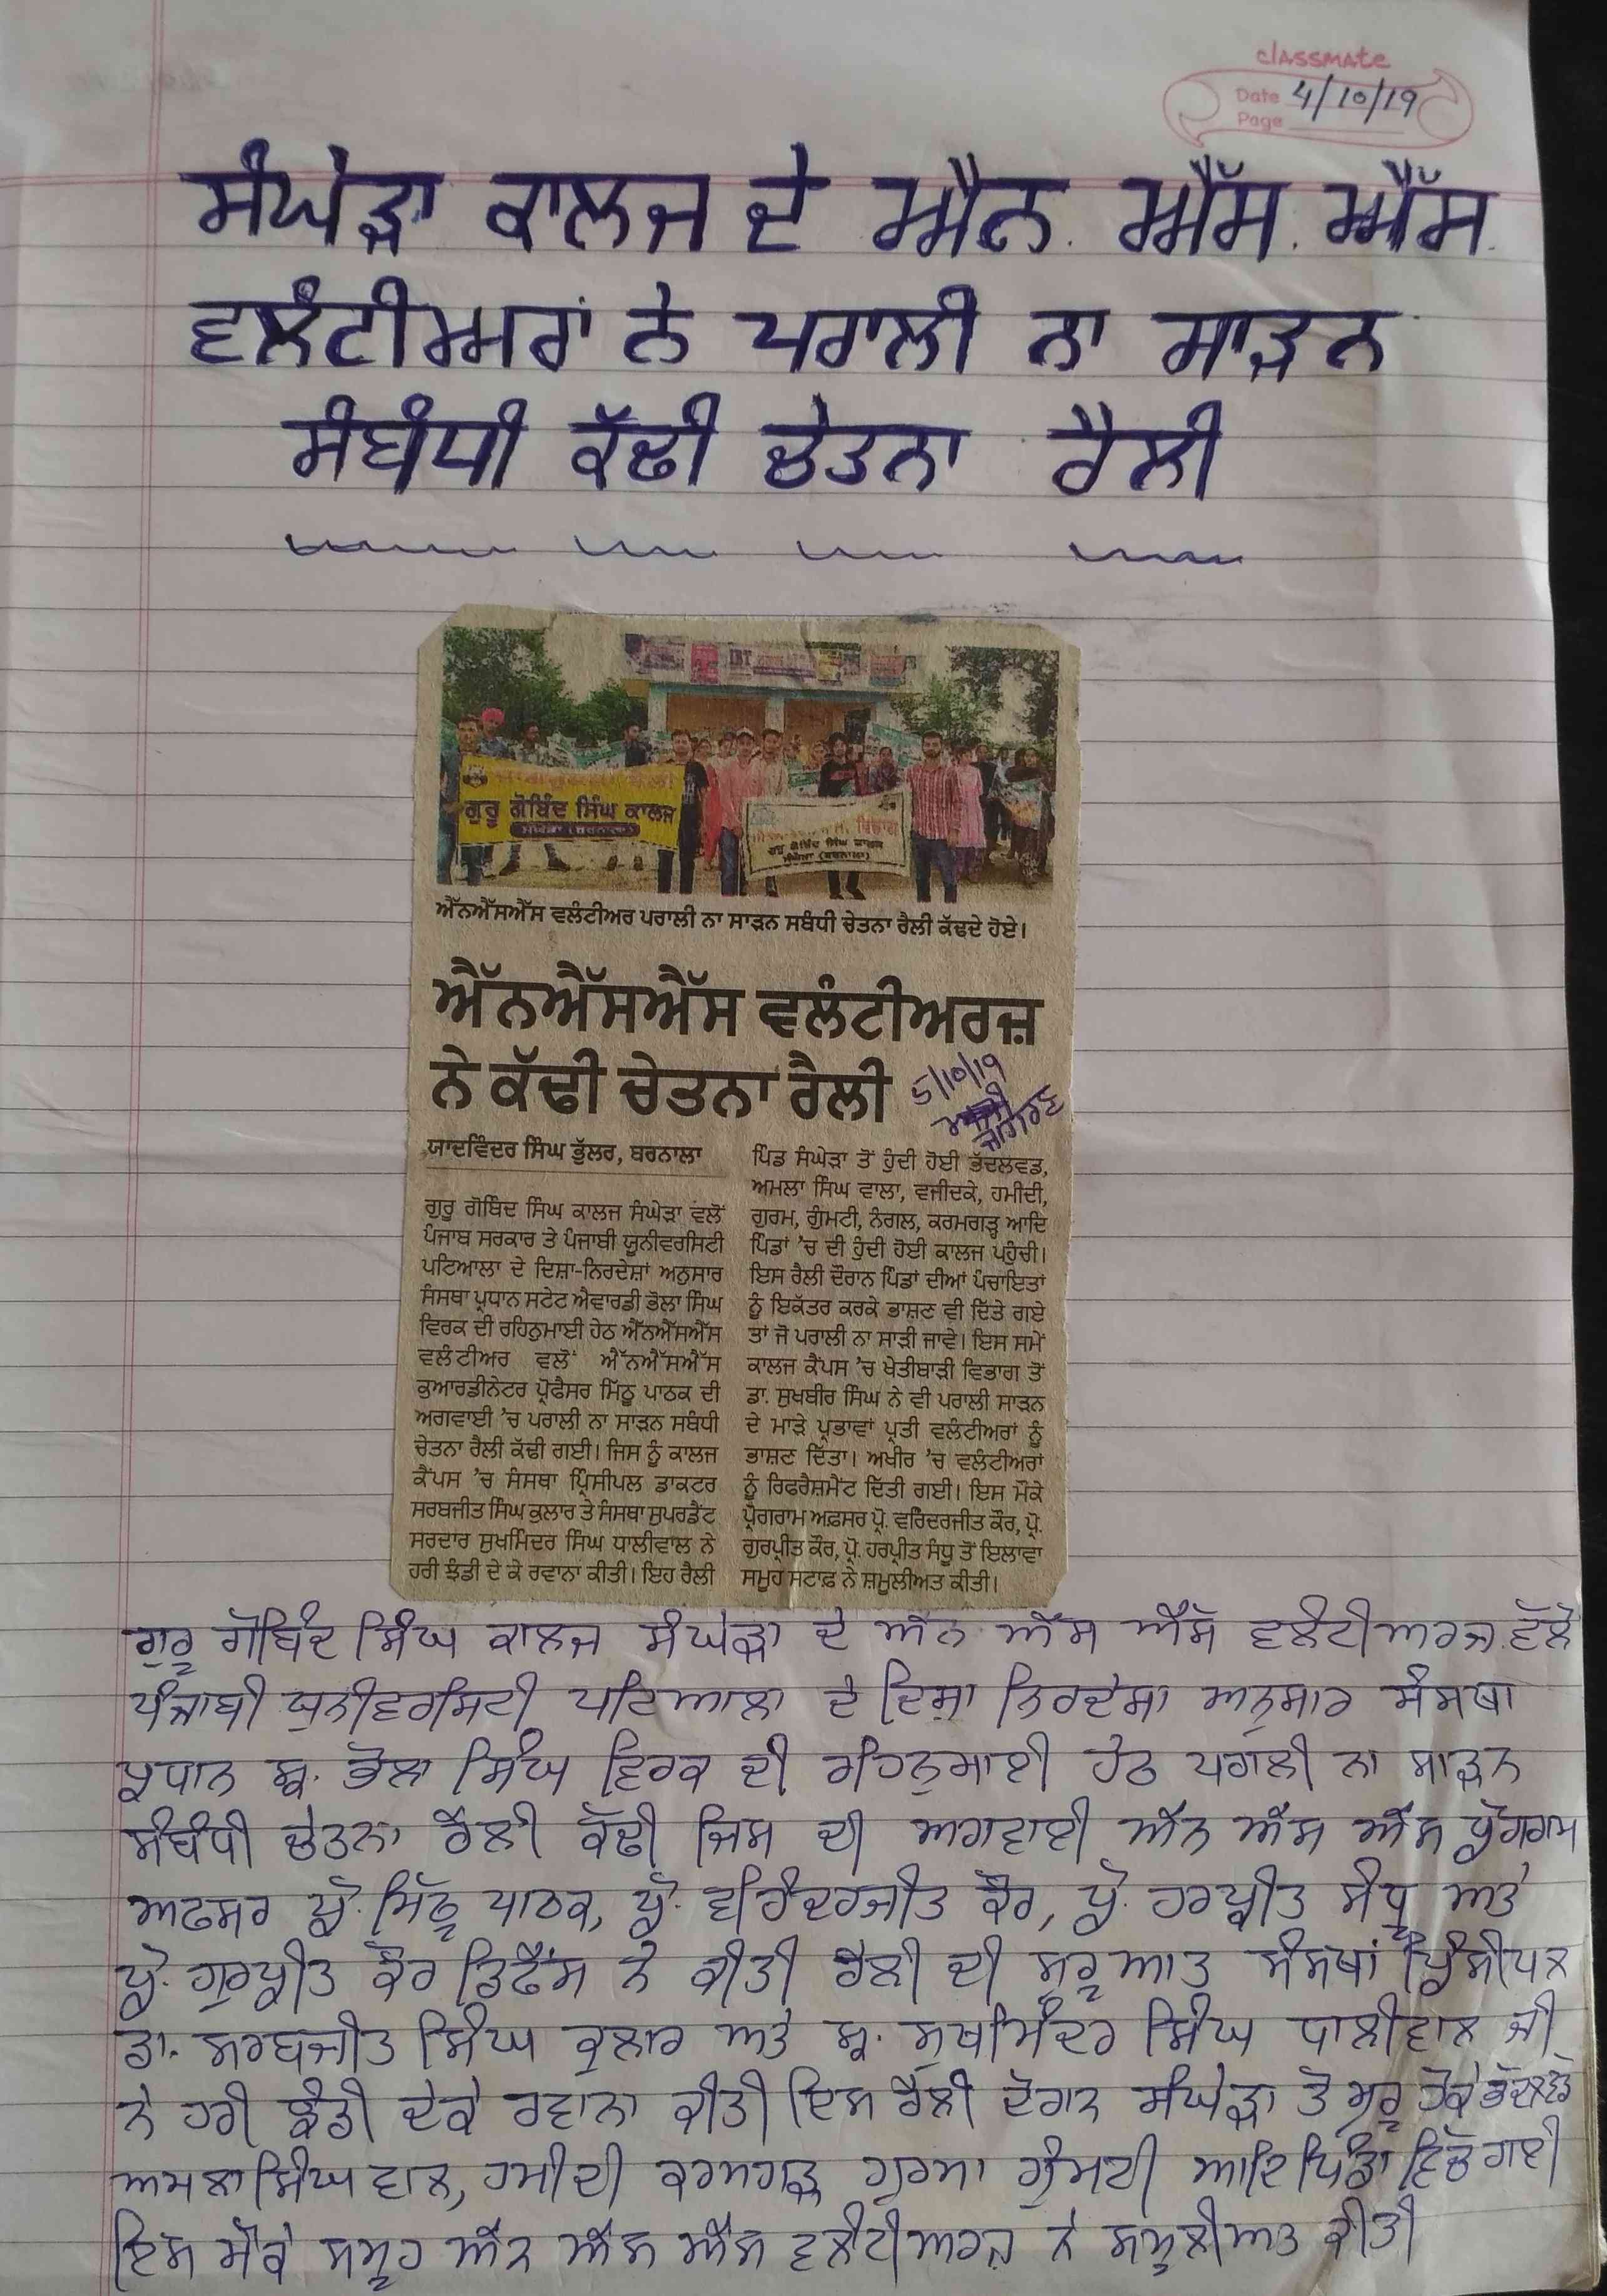 classmate
Date 4/10/19
Page
ਸੰਘੇੜਾ ਕਾਲਜ ਦੇ ਐਨ. ਐੱਸ. ਐੱਸ.
ਵਲੰਟੀਅਰਾਂ ਨੇ ਪਰਾਲੀ ਨਾ ਸਾੜਨ
ਸੰਬੰਧੀ ਕੱਢੀ ਚੇਤਨਾ ਰੈਲੀ
ਗੁਰੂ ਗੋਬਿੰਦ ਸਿੰਘ ਕਾਲਜ
ਸੰਘੇੜਾ (ਬਰਨਾਲਾ)
ਵਿਭਾਗ
ਗੁਰੂ ਗੋਬਿੰਦ ਸਿੰਘ ਕਾਲਜ
ਸੰਘੇੜਾ (ਬਰਨਾਲਾ)
ਐੱਨਐੱਸਐੱਸ ਵਲੰਟੀਅਰ ਪਰਾਲੀ ਨਾ ਸਾੜਨ ਸਬੰਧੀ ਚੇਤਨਾ ਰੈਲੀ ਕੱਢਦੇ ਹੋਏ।
ਐੱਨਐੱਸਐੱਸ ਵਲੰਟੀਅਰਜ਼
ਨੇ ਕੱਢੀ ਚੇਤਨਾ ਰੈਲੀ
5/10/19
ਜਾਗਰਣ
ਯਾਦਵਿੰਦਰ ਸਿੰਘ ਭੁੱਲਰ, ਬਰਨਾਲਾ
ਗੁਰੂ ਗੋਬਿੰਦ ਸਿੰਘ ਕਾਲਜ ਸੰਘੇੜਾ ਵਲੋਂ
ਪੰਜਾਬ ਸਰਕਾਰ ਤੇ ਪੰਜਾਬੀ ਯੂਨੀਵਰਸਿਟੀ
ਪਟਿਆਲਾ ਦੇ ਦਿਸ਼ਾ-ਨਿਰਦੇਸ਼ਾਂ ਅਨੁਸਾਰ
ਸੰਸਥਾ ਪ੍ਰਧਾਨ ਸਟੇਟ ਐਵਾਰਡੀ ਭੋਲਾ ਸਿੰਘ
ਵਿਰਕ ਦੀ ਰਹਿਨੁਮਾਈ ਹੇਠ ਐੱਨਐੱਸਐੱਸ
ਵਲੰਟੀਅਰ ਵਲੋਂ ਐੱਨਐੱਸਐੱਸ
ਕੁਆਰਡੀਨੇਟਰ ਪ੍ਰੋਫੈਸਰ ਮਿੱਠੂ ਪਾਠਕ ਦੀ
ਅਗਵਾਈ 'ਚ ਪਰਾਲੀ ਨਾ ਸਾੜਨ ਸਬੰਧੀ
ਚੇਤਨਾ ਰੈਲੀ ਕੱਢੀ ਗਈ। ਜਿਸ ਨੂੰ ਕਾਲਜ
ਕੈਂਪਸ 'ਚ ਸੰਸਥਾ ਪ੍ਰਿੰਸੀਪਲ ਡਾਕਟਰ
ਸਰਬਜੀਤ ਸਿੰਘ ਕੁਲਾਰ ਤੇ ਸੰਸਥਾ ਸੁਪਰਡੈਂਟ
ਸਰਦਾਰ ਸੁਖਮਿੰਦਰ ਸਿੰਘ ਧਾਲੀਵਾਲ ਨੇ
ਹਰੀ ਝੰਡੀ ਦੇ ਕੇ ਰਵਾਨਾ ਕੀਤੀ। ਇਹ ਰੈਲੀ
ਪਿੰਡ ਸੰਘੇੜਾ ਤੋਂ ਹੁੰਦੀ ਹੋਈ ਭੱਦਲਵਡ,
ਅਮਲਾ ਸਿੰਘ ਵਾਲਾ, ਵਜੀਦਕੇ, ਹਮੀਦੀ,
ਗੁਰਮ, ਗੁੰਮਟੀ, ਨੰਗਲ, ਕਰਮਗੜ੍ਹ ਆਦਿ
ਪਿੰਡਾਂ 'ਚ ਦੀ ਹੁੰਦੀ ਹੋਈ ਕਾਲਜ ਪਹੁੰਚੀ।
ਇਸ ਰੈਲੀ ਦੌਰਾਨ ਪਿੰਡਾਂ ਦੀਆਂ ਪੰਚਾਇਤਾਂ
ਨੂੰ ਇਕੱਤਰ ਕਰਕੇ ਭਾਸ਼ਣ ਵੀ ਦਿੱਤੇ ਗਏ
ਤਾਂ ਜੋ ਪਰਾਲੀ ਨਾ ਸਾੜੀ ਜਾਵੇ। ਇਸ ਸਮੇਂ
ਕਾਲਜ ਕੈਂਪਸ 'ਚ ਖੇਤੀਬਾੜੀ ਵਿਭਾਗ ਤੋਂ
ਡਾ. ਸੁਖਬੀਰ ਸਿੰਘ ਨੇ ਵੀ ਪਰਾਲੀ ਸਾੜਨ
ਦੇ ਮਾੜੇ ਪ੍ਰਭਾਵਾਂ ਪ੍ਰਤੀ ਵਲੰਟੀਅਰਾਂ ਨੂੰ
ਭਾਸ਼ਣ ਦਿੱਤਾ। ਅਖੀਰ 'ਚ ਵਲੰਟੀਅਰਾਂ
ਨੂੰ ਰਿਫਰੈਸ਼ਮੈਂਟ ਦਿੱਤੀ ਗਈ। ਇਸ ਮੌਕੇ
ਪ੍ਰੋਗਰਾਮ ਅਫ਼ਸਰ ਪ੍ਰੋ. ਵਰਿੰਦਰਜੀਤ ਕੌਰ, ਪ੍ਰੋ.
ਗੁਰਪ੍ਰੀਤ ਕੌਰ, ਪ੍ਰੋ. ਹਰਪ੍ਰੀਤ ਸੰਧੂ ਤੋਂ ਇਲਾਵਾ
ਸਮੂਹ ਸਟਾਫ਼ ਨੇ ਸ਼ਮੂਲੀਅਤ ਕੀਤੀ।
ਗੁਰੂ ਗੋਬਿੰਦ ਸਿੰਘ ਕਾਲਜ ਸੰਘੇੜਾ ਦੇ ਐਨ ਐੱਸ ਐੱਸ ਵਲੰਟੀਅਰਜ਼ ਵੱਲੋਂ
ਪੰਜਾਬੀ ਯੂਨੀਵਰਸਿਟੀ ਪਟਿਆਲਾ ਦੇ ਦਿਸ਼ਾ ਨਿਰਦੇਸ਼ਾ ਅਨੁਸਾਰ ਸੰਸਥਾ
ਪ੍ਰਧਾਨ ਸ੍ਰ. ਭੋਲਾ ਸਿੰਘ ਵਿਰਕ ਦੀ ਰਹਿਨੁਮਾਈ ਹੇਠ ਪਰਾਲੀ ਨਾ ਸਾੜਨ
ਸੰਬੰਧੀ ਚੇਤਨਾ ਰੈਲੀ ਕੱਢੀ ਜਿਸ ਦੀ ਅਗਵਾਈ ਐੱਨ ਐੱਸ ਐੱਸ ਪ੍ਰੋਗਰਾਮ
ਅਫਸਰ ਪ੍ਰੋ. ਮਿੱਠੂ ਪਾਠਕ, ਪ੍ਰੋ. ਵਰਿੰਦਰਜੀਤ ਕੌਰ, ਪ੍ਰੋ. ਹਰਪ੍ਰੀਤ ਸੰਧੂ ਅਤੇ
ਪ੍ਰੋ. ਗੁਰਪ੍ਰੀਤ ਕੌਰ ਡਿਫੈਂਸ ਨੇ ਕੀਤੀ ਰੈਲੀ ਦੀ ਸ਼ੁਰੂਆਤ ਸੰਸਥਾਂ ਪ੍ਰਿੰਸੀਪਲ
ਡਾ. ਸਰਬਜੀਤ ਸਿੰਘ ਕੁਲਾਰ ਅਤੇ ਸ੍ਰ. ਸੁਖਮਿੰਦਰ ਸਿੰਘ ਧਾਲੀਵਾਲ ਜੀ
ਨੇ ਹਰੀ ਝੰਡੀ ਦੇਕੇ ਰਵਾਨਾ ਕੀਤੀ ਇਸ ਰੈਲੀ ਦੋਰਾਨ ਸੰਘੇੜਾ ਤੋ ਸ਼ੁਰੂ ਹੋਕੇ ਭੱਦਲਵੱਡ
ਅਮਲਾ ਸਿੰਘ ਵਾਲ, ਹਮੀਦੀ ਕਰਮਗੜ੍ਹ ਗੁਰਮਾ ਗੁੰਮਟੀ ਆਦਿ ਪਿੰਡਾਂ ਵਿੱਚ ਗਈ
ਇਸ ਮੌਕੇ ਸਮੂਹ ਐੱਨ ਐੱਸ ਐੱਸ ਵਲੰਟੀਅਰਜ਼ ਨੇ ਸਮੂਲੀਅਤ ਕੀਤੀ